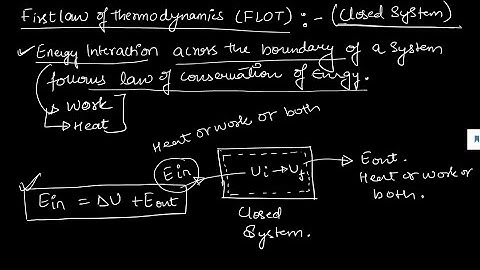 First law of thermodynamics (FLOT) :- (Closed System)
✓ Energy Interaction across the boundary of a system
follows law of conservation of Energy.
→ Work
→ Heat
Heat or work or both
Ein
Ui → Uf
Eout.
Heat or work or
both.
Ein = ΔU + Eout
Closed
System.